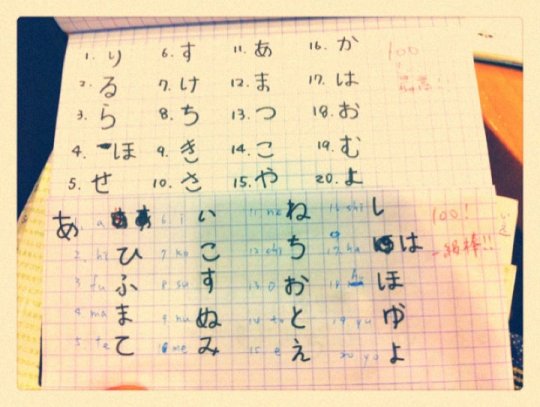 1. り 6. す 11. あ 16. か 100
2. る 7. け 12. ま 17. は
3. ら 8. ち 13. つ 18. お
4. ほ 9. き 14. こ 19. む
5. せ 10. さ 15. や 20. よ
あ a 6. i い 11. ne ね し 100!
2. hi ひ 7. ko こ 12. chi ち 17. ha は 一級棒!!
3. fu ふ 8. su す 13. o お ほ
4. ma ま 9. nu ぬ 14. to と 19 yu ゆ
5. te て み 15. e え 20 yo よ